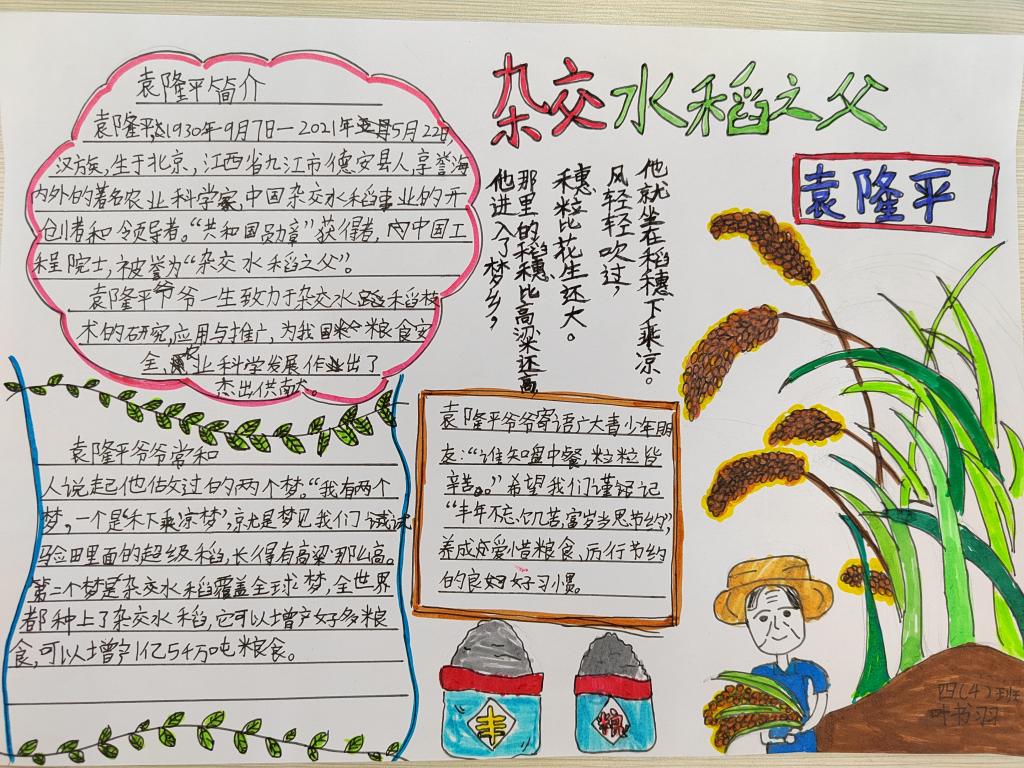 杂交水稻之父
袁隆平
袁隆平简介
袁隆平,1930年9月7日—2021年5月22日,
汉族,生于北京,江西省九江市德安县人,享誉海
内外的著名农业科学家,中国杂交水稻事业的开
创者和领导者。“共和国勋章”获得者,中国工
程院士,被誉为“杂交水稻之父”。
袁隆平爷爷一生致力于杂交水稻技
术的研究,应用与推广,为我国粮食安
全、农业科学发展作出了
杰出供献。
他就坐在稻穗下乘凉。
风轻轻吹过,
穗粒比花生还大。
那里的稻穗比高梁还高,
他进入了梦乡,
袁隆平爷爷常和
人说起他做过的两个梦。“我有两个
梦,一个是“禾下乘凉梦”,就是梦见我们试
验田里面的超级稻,长得有高梁那么高。
第二个梦是杂交水稻覆盖全球梦,全世界
都种上了杂交水稻,它可以增产好多粮
食,可以增产1亿54万吨粮食。
袁隆平爷爷寄语广大青少年朋
友:“谁知盘中餐,粒粒皆
辛苦。”希望我们谨记
“丰年不忘饥苦,富岁当思节约”,
养成爱惜粮食,厉行节约
的良好习惯。
丰
四(4)班
叶书羽